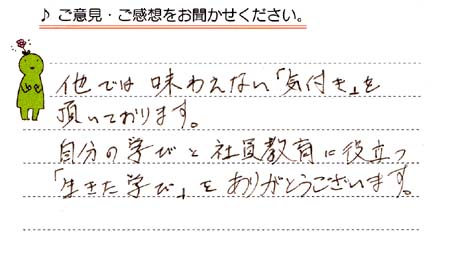 ♪ ご意見・ご感想をお聞かせください。
他では味わえない「気付き」を
頂いております。
自分の学びと社員教育に役立つ
「生きた学び」をありがとうございます。